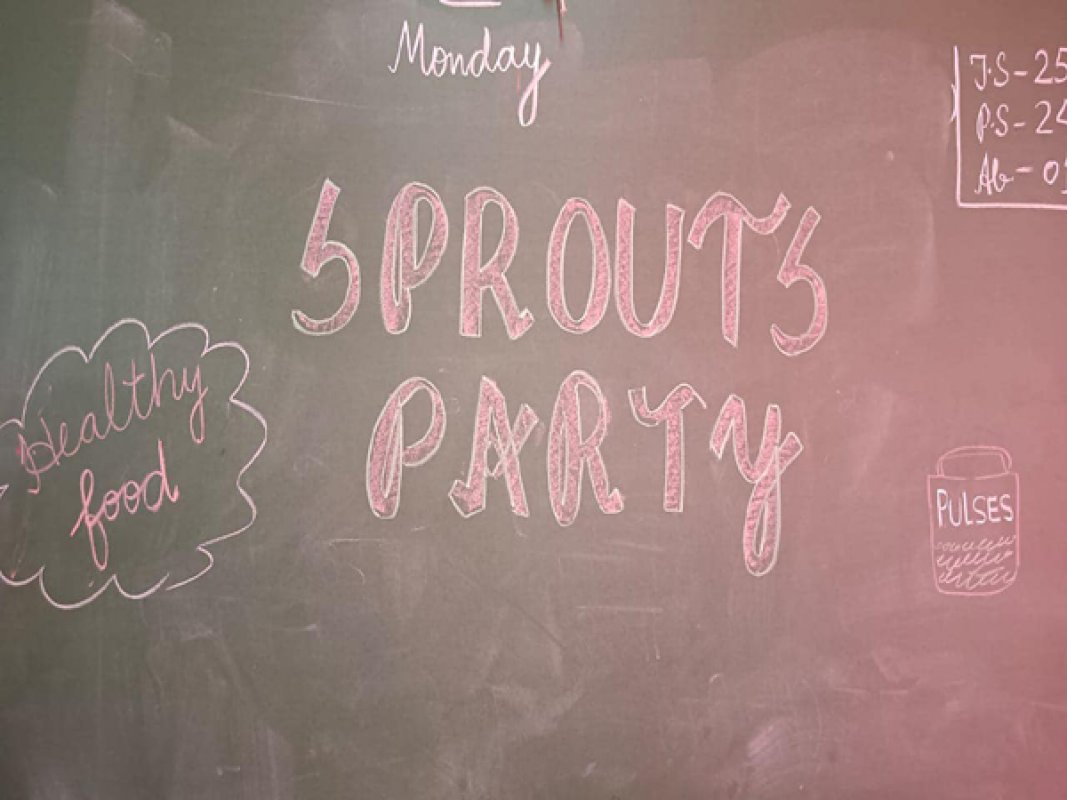 Monday
T.S-25
P.S-24
Ab-01
SPROUTS
PARTY
Healthy
food
PULSES